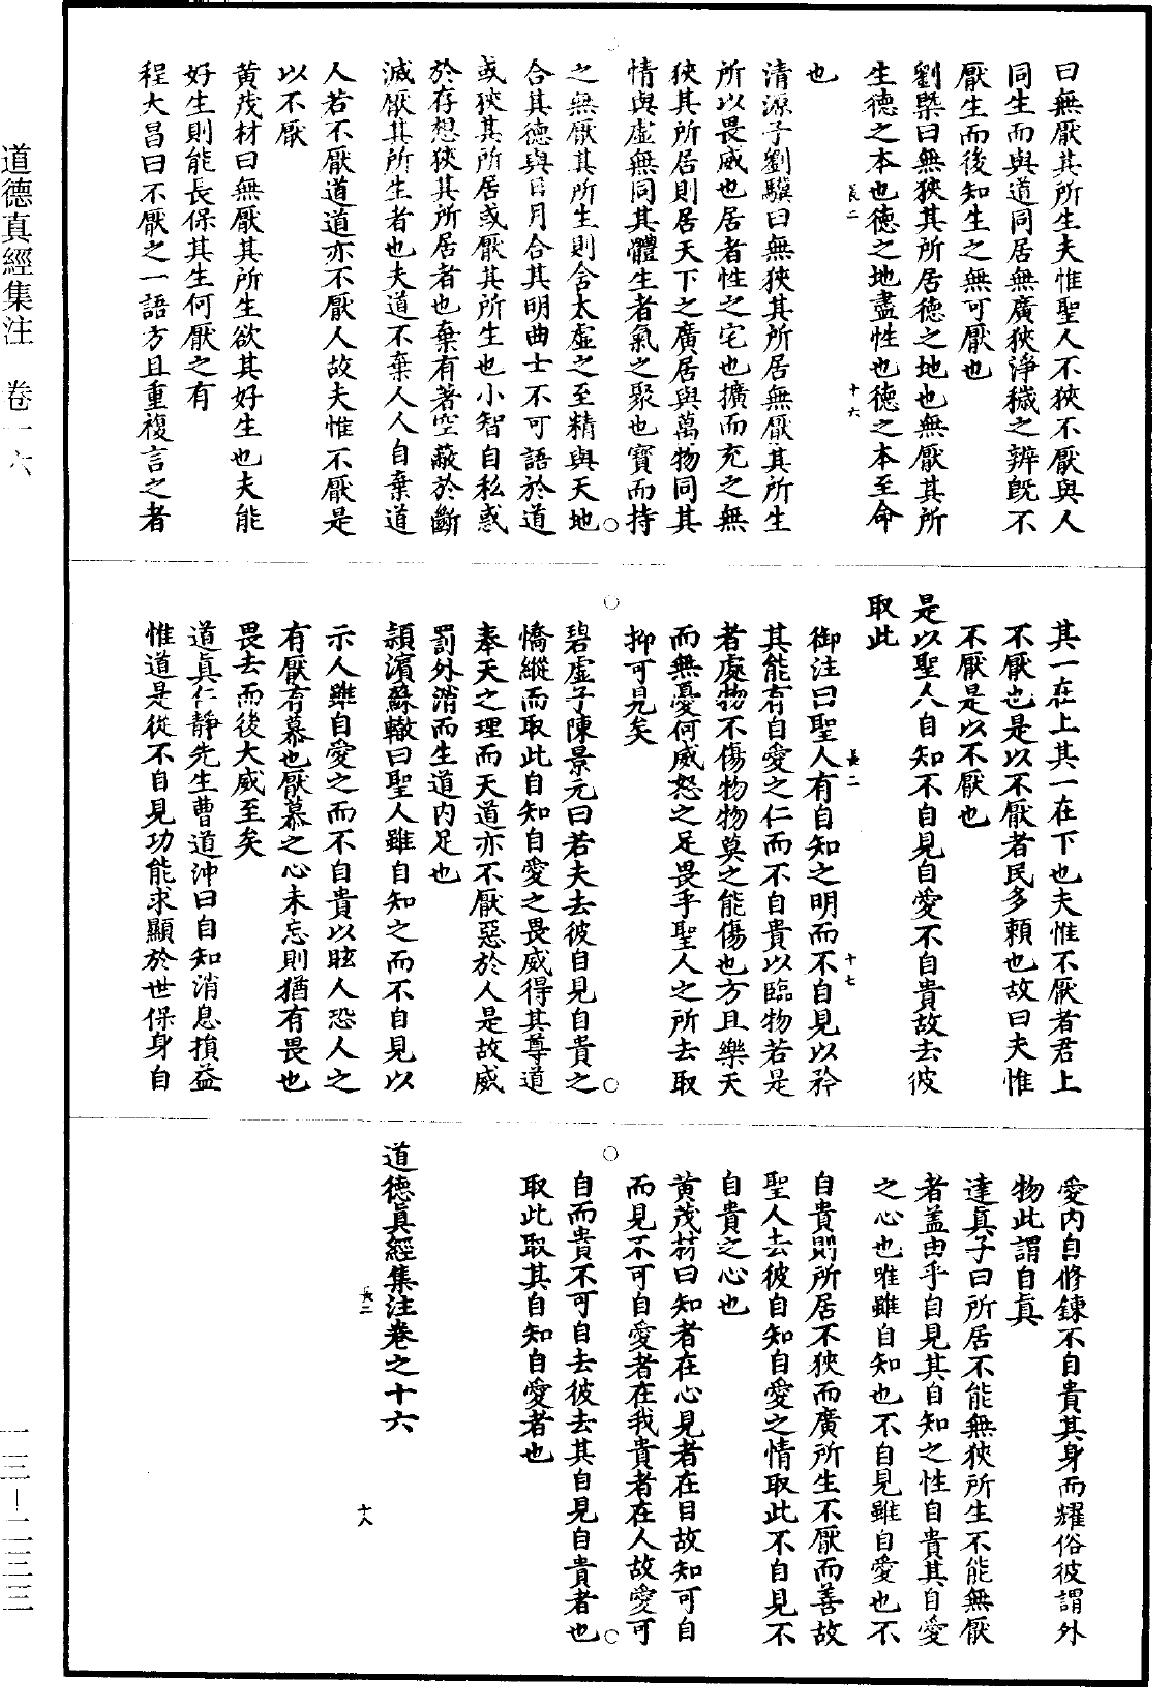 曰無厭其所生夫惟聖人不狹不厭與人
同生而與道同居無廣狹淨穢之辨旣不
厭生而後知生之無可厭也
劉槩曰無狹其所居德之地也無厭其所
生德之本也德之地盡性也德之本至命
長二 十六
也
清源子劉驥曰無狹其所居無厭其所生
所以畏威也居者性之宅也擴而充之無
狹其所居則居天下之廣居與萬物同其
情與虛無同其體生者氣之聚也寶而持
之無厭其所生則含太虛之至精與天地
合其德與日月合其明曲士不可語於道
或狹其所居或厭其所生也小智自私惑
於存想狹其所居者也棄有著空蔽於斷
滅厭其所生者也夫道不棄人人自棄道
人若不厭道道亦不厭人故夫惟不厭是
以不厭
黃茂材曰無厭其所生欲其好生也夫能
好生則能長保其生何厭之有
程大昌曰不厭之一語方且重複言之者
其一在上其一在下也夫惟不厭者君上
不厭也是以不厭者民多賴也故曰夫惟
不厭是以不厭也
是以聖人自知不自見自愛不自貴故去彼
取此
長二 十七
御注曰聖人有自知之明而不自見以矜
其能有自愛之仁而不自貴以臨物若是
者處物不傷物物莫之能傷也方且樂天
而無憂何威怒之足畏乎聖人之所去取
抑可見矣
碧虛子陳景元曰若夫去彼自見自貴之
憍縱而取此自知自愛之畏威得其尊道
奉天之理而天道亦不厭惡於人是故威
罰外消而生道内足也
頴濱蘇轍曰聖人雖自知之而不自見以
示人雖自愛之而不自貴以眩人恐人之
有厭有慕也厭慕之心未忘則猶有畏也
畏去而後大威至矣
道真仁靜先生曹道沖曰自知消息損益
惟道是從不自見功能求顯於世保身自
愛内自修鍊不自貴其身而耀俗彼謂外
物此謂自真
達真子曰所居不能無狹所生不能無厭
者蓋由乎自見其自知之性自貴其自愛
之心也唯雖自知也不自見雖自愛也不
自貴則所居不狹而廣所生不厭而善故
聖人去彼自知自愛之情取此不自見不
自貴之心也
黃茂材曰知者在心見者在目故知可自
而見不可自愛者在我貴者在人故愛可
自而貴不可自去彼去其自見自貴者也
取此取其自知自愛者也
道德真經集注卷之十六
長二 十八
道德真經集注 卷一六
一三—二三三